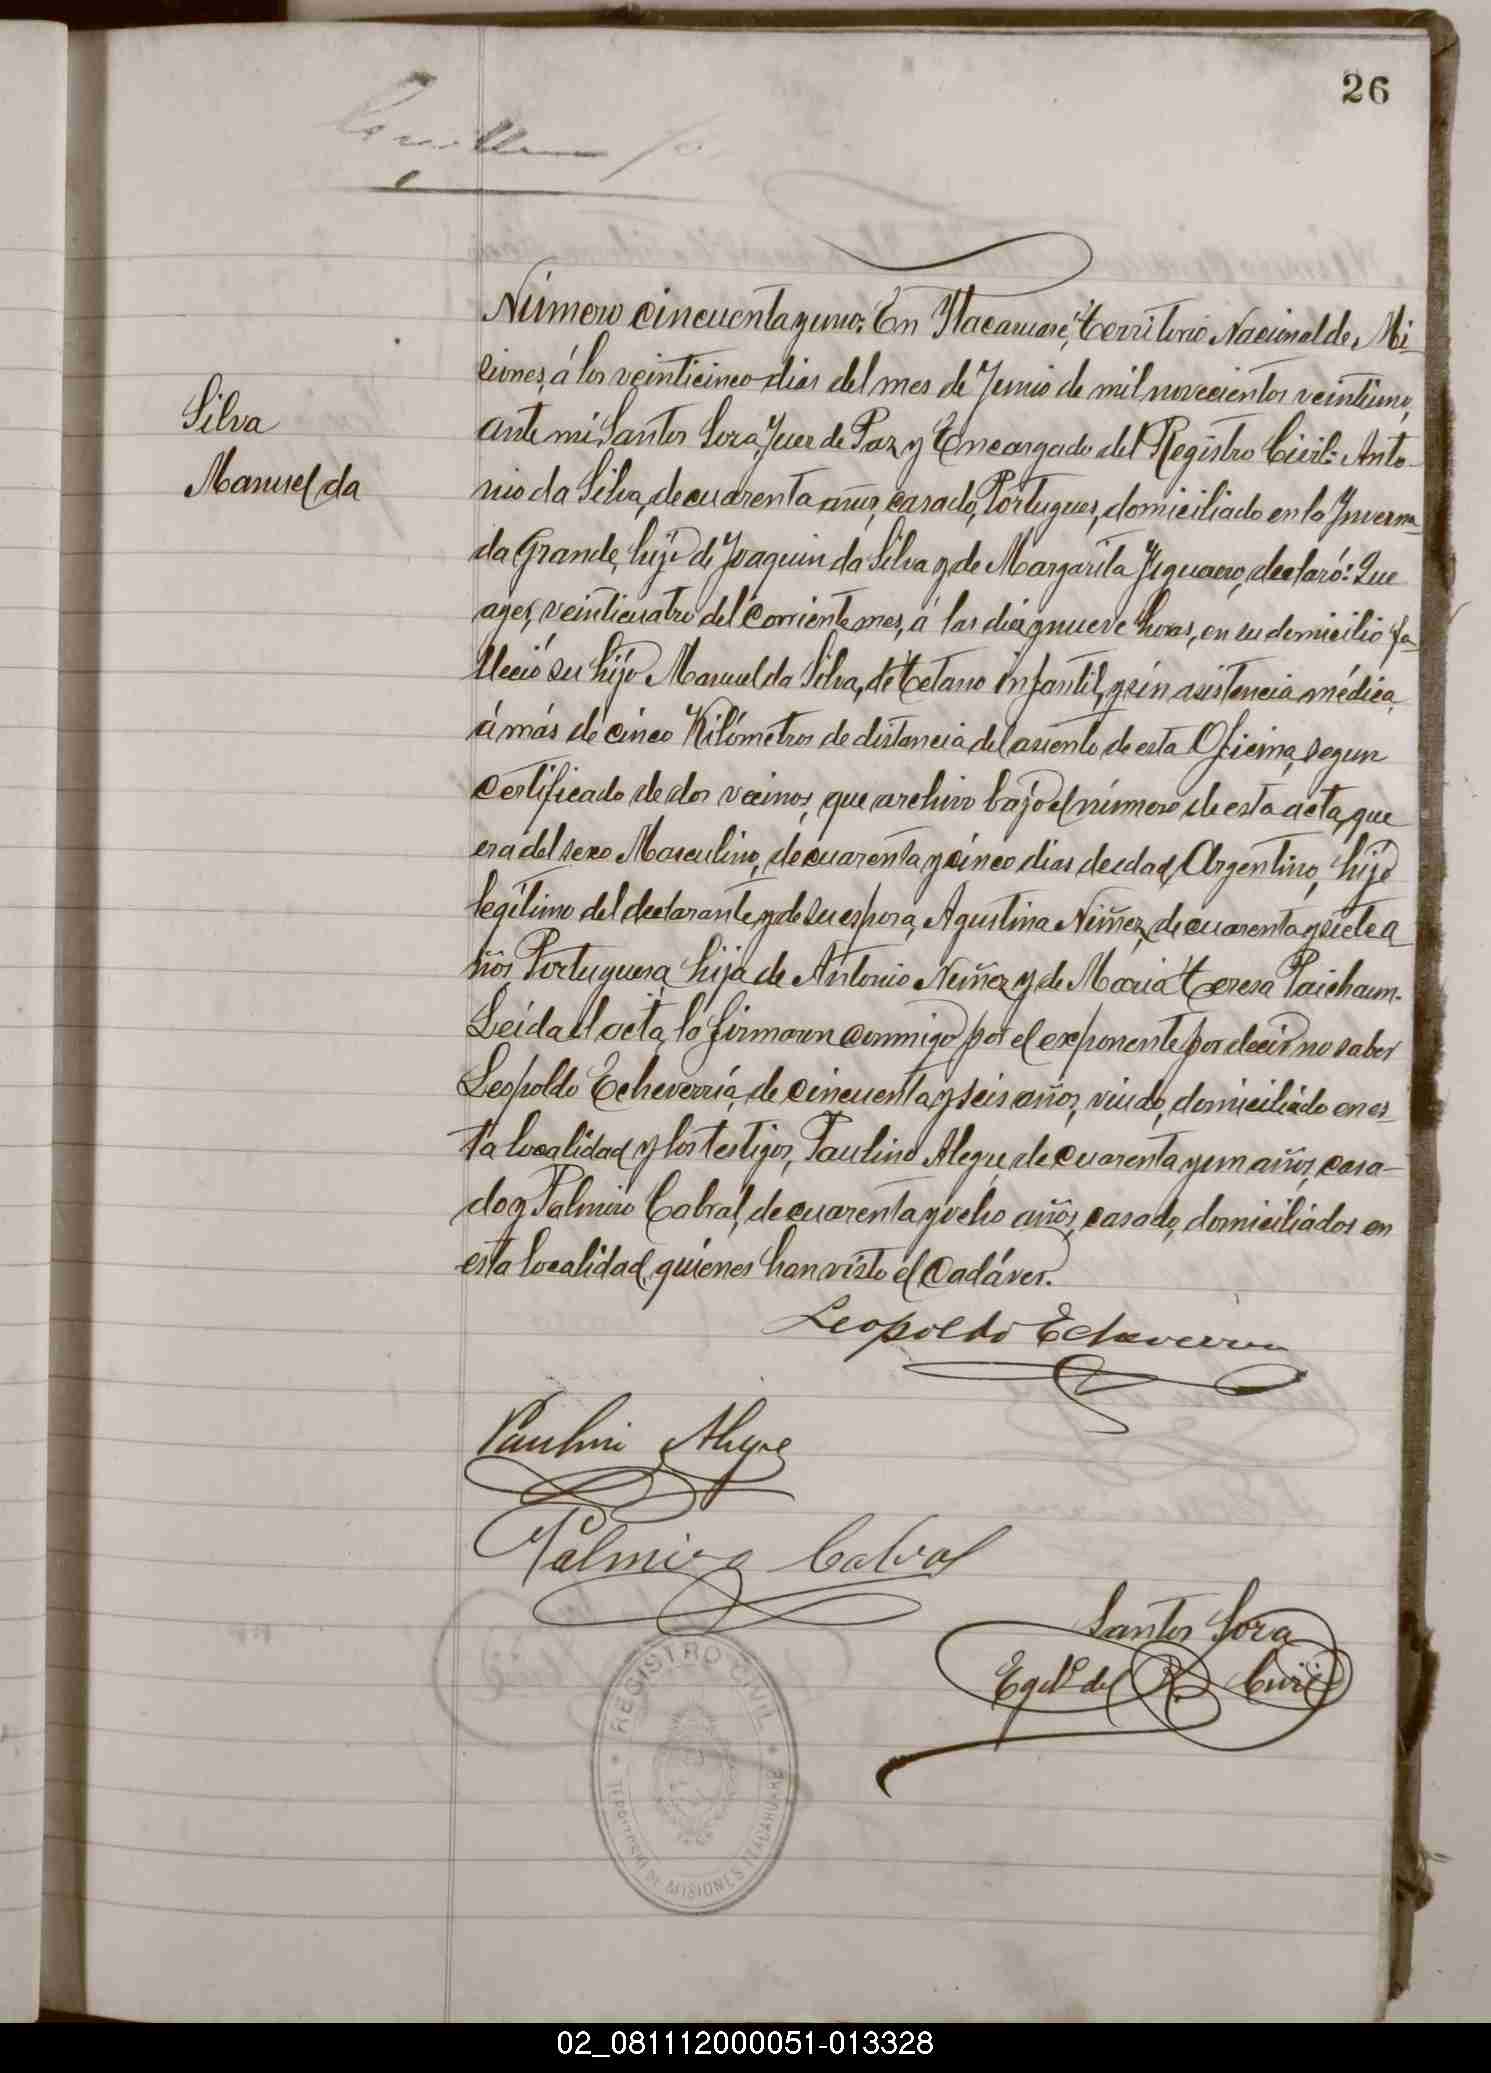 26
Silva
Manuel da
Número cincuenta y uno: En Itacaruaré, Territorio Nacional de Mi-
siones, á los veinticinco dias del mes de Junio de mil novecientos veintiuno,
ante mi, Santos Sora, Juez de Paz y Encargado del Registro Civil: Anto-
nio da Silva, de cuarenta años, casado, Portugues, domiciliado en la Inverna-
da Grande, hijo de Joaquin da Silva y de Margarita declaró: Que
ayer, veinticuatro del corriente mes, á las diez y nueve horas, en su domicilio fa-
lleció su hijo Manuel da Silva, de tetano infantil, y sin asistencia médica,
á más de cinco Kilómetros de distancia del asiento de esta Oficina, segun
certificado de dos vecinos, que archivo bajo el número de esta acta, que
era del sexo Masculino, de cuarenta y cinco dias de edad, Argentino, hijo
legítimo del declarante y de su esposa, Agustina Nuñez, de cuarenta y siete a
ños, Portuguesa, hija de Antonio Nuñez y de Maria Teresa
Leída el acta, la firmaron conmigo por el exponente por decir no saber
Leopoldo Echeverría, de cincuenta y seis años, viudo, domiciliado en es-
ta localidad y los testigos, Paulino Alegre, de cuarenta y un años, casa-
do y Palmiro Cabral, de cuarenta y ocho años, casado, domiciliados en
esta localidad, quienes han visto el Cadáver.
Leopoldo Echeverria
Paulino Alegre
Palmiro Cabral
Santos Sora
Egdo. del R. Civil
REGISTRO CIVIL
TERRITORIO DE MISIONES ITACARUARÉ
02_081112000051-013328